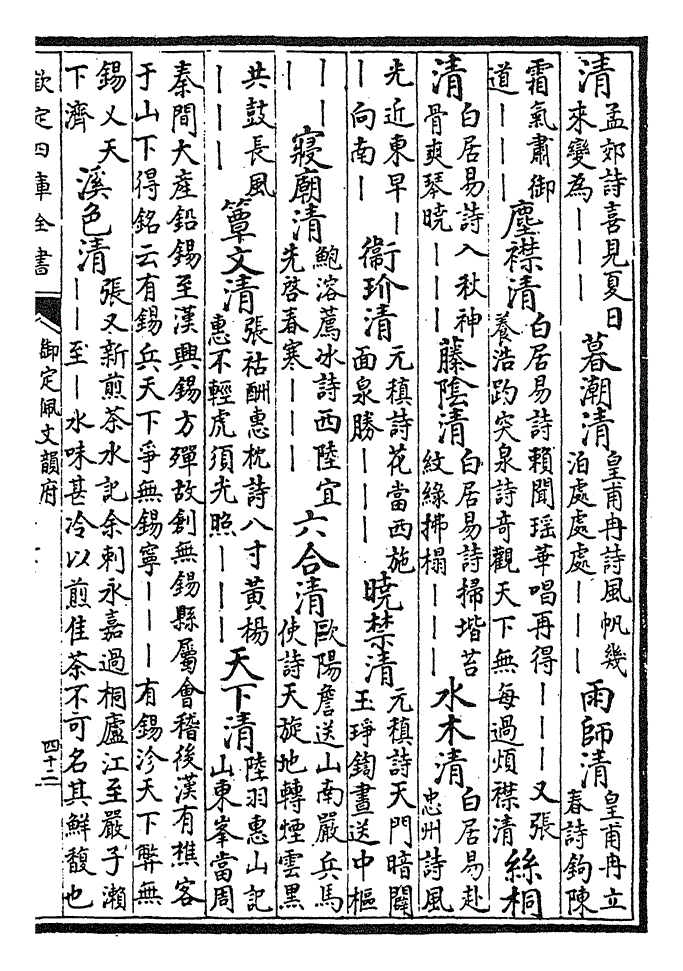 清孟郊詩喜見夏日來變為丨丨丨暮潮清皇甫冉詩風帆幾泊處處處丨丨丨雨師清皇甫冉立春詩鉤陳
霜氣肅御道丨丨丨塵襟清白居易詩賴聞瑶華唱再得丨丨丨又張養浩趵突泉詩奇觀天下無每過煩襟清絲桐
清白居易詩入秋神骨爽琴曉丨丨丨藤陰清白居易詩掃堦苔紋緑拂榻丨丨丨水木清白居易赴忠州詩風
光近東早丨丨向南丨衞玠清元稹詩花當西施面泉勝丨丨丨曉禁清元稹詩天門暗闢玉琤鍧晝送中樞
丨丨丨寢廟清鮑溶薦冰詩西陸宜先啓春寒丨丨丨六合清歐陽詹送山南嚴兵馬使詩天旋地轉煙雲黒
共鼓長風丨丨丨簟文清張祜酬惠枕詩八寸黄楊惠不輕虎須光照丨丨丨天下清陸羽惠山記山東峯當周
秦間大產鉛錫至漢興錫方殫故創無錫縣屬會稽後漢有樵客于山下得銘云有錫兵天下爭無錫寧丨丨丨有錫沴天下弊無
錫乂天下濟溪色清張又新煎茶水記余刺永嘉過桐廬江至嚴子瀨丨丨至丨水味甚冷以煎佳茶不可名其鮮馥也
欽定四庫全書
御定佩文韻府
四十二